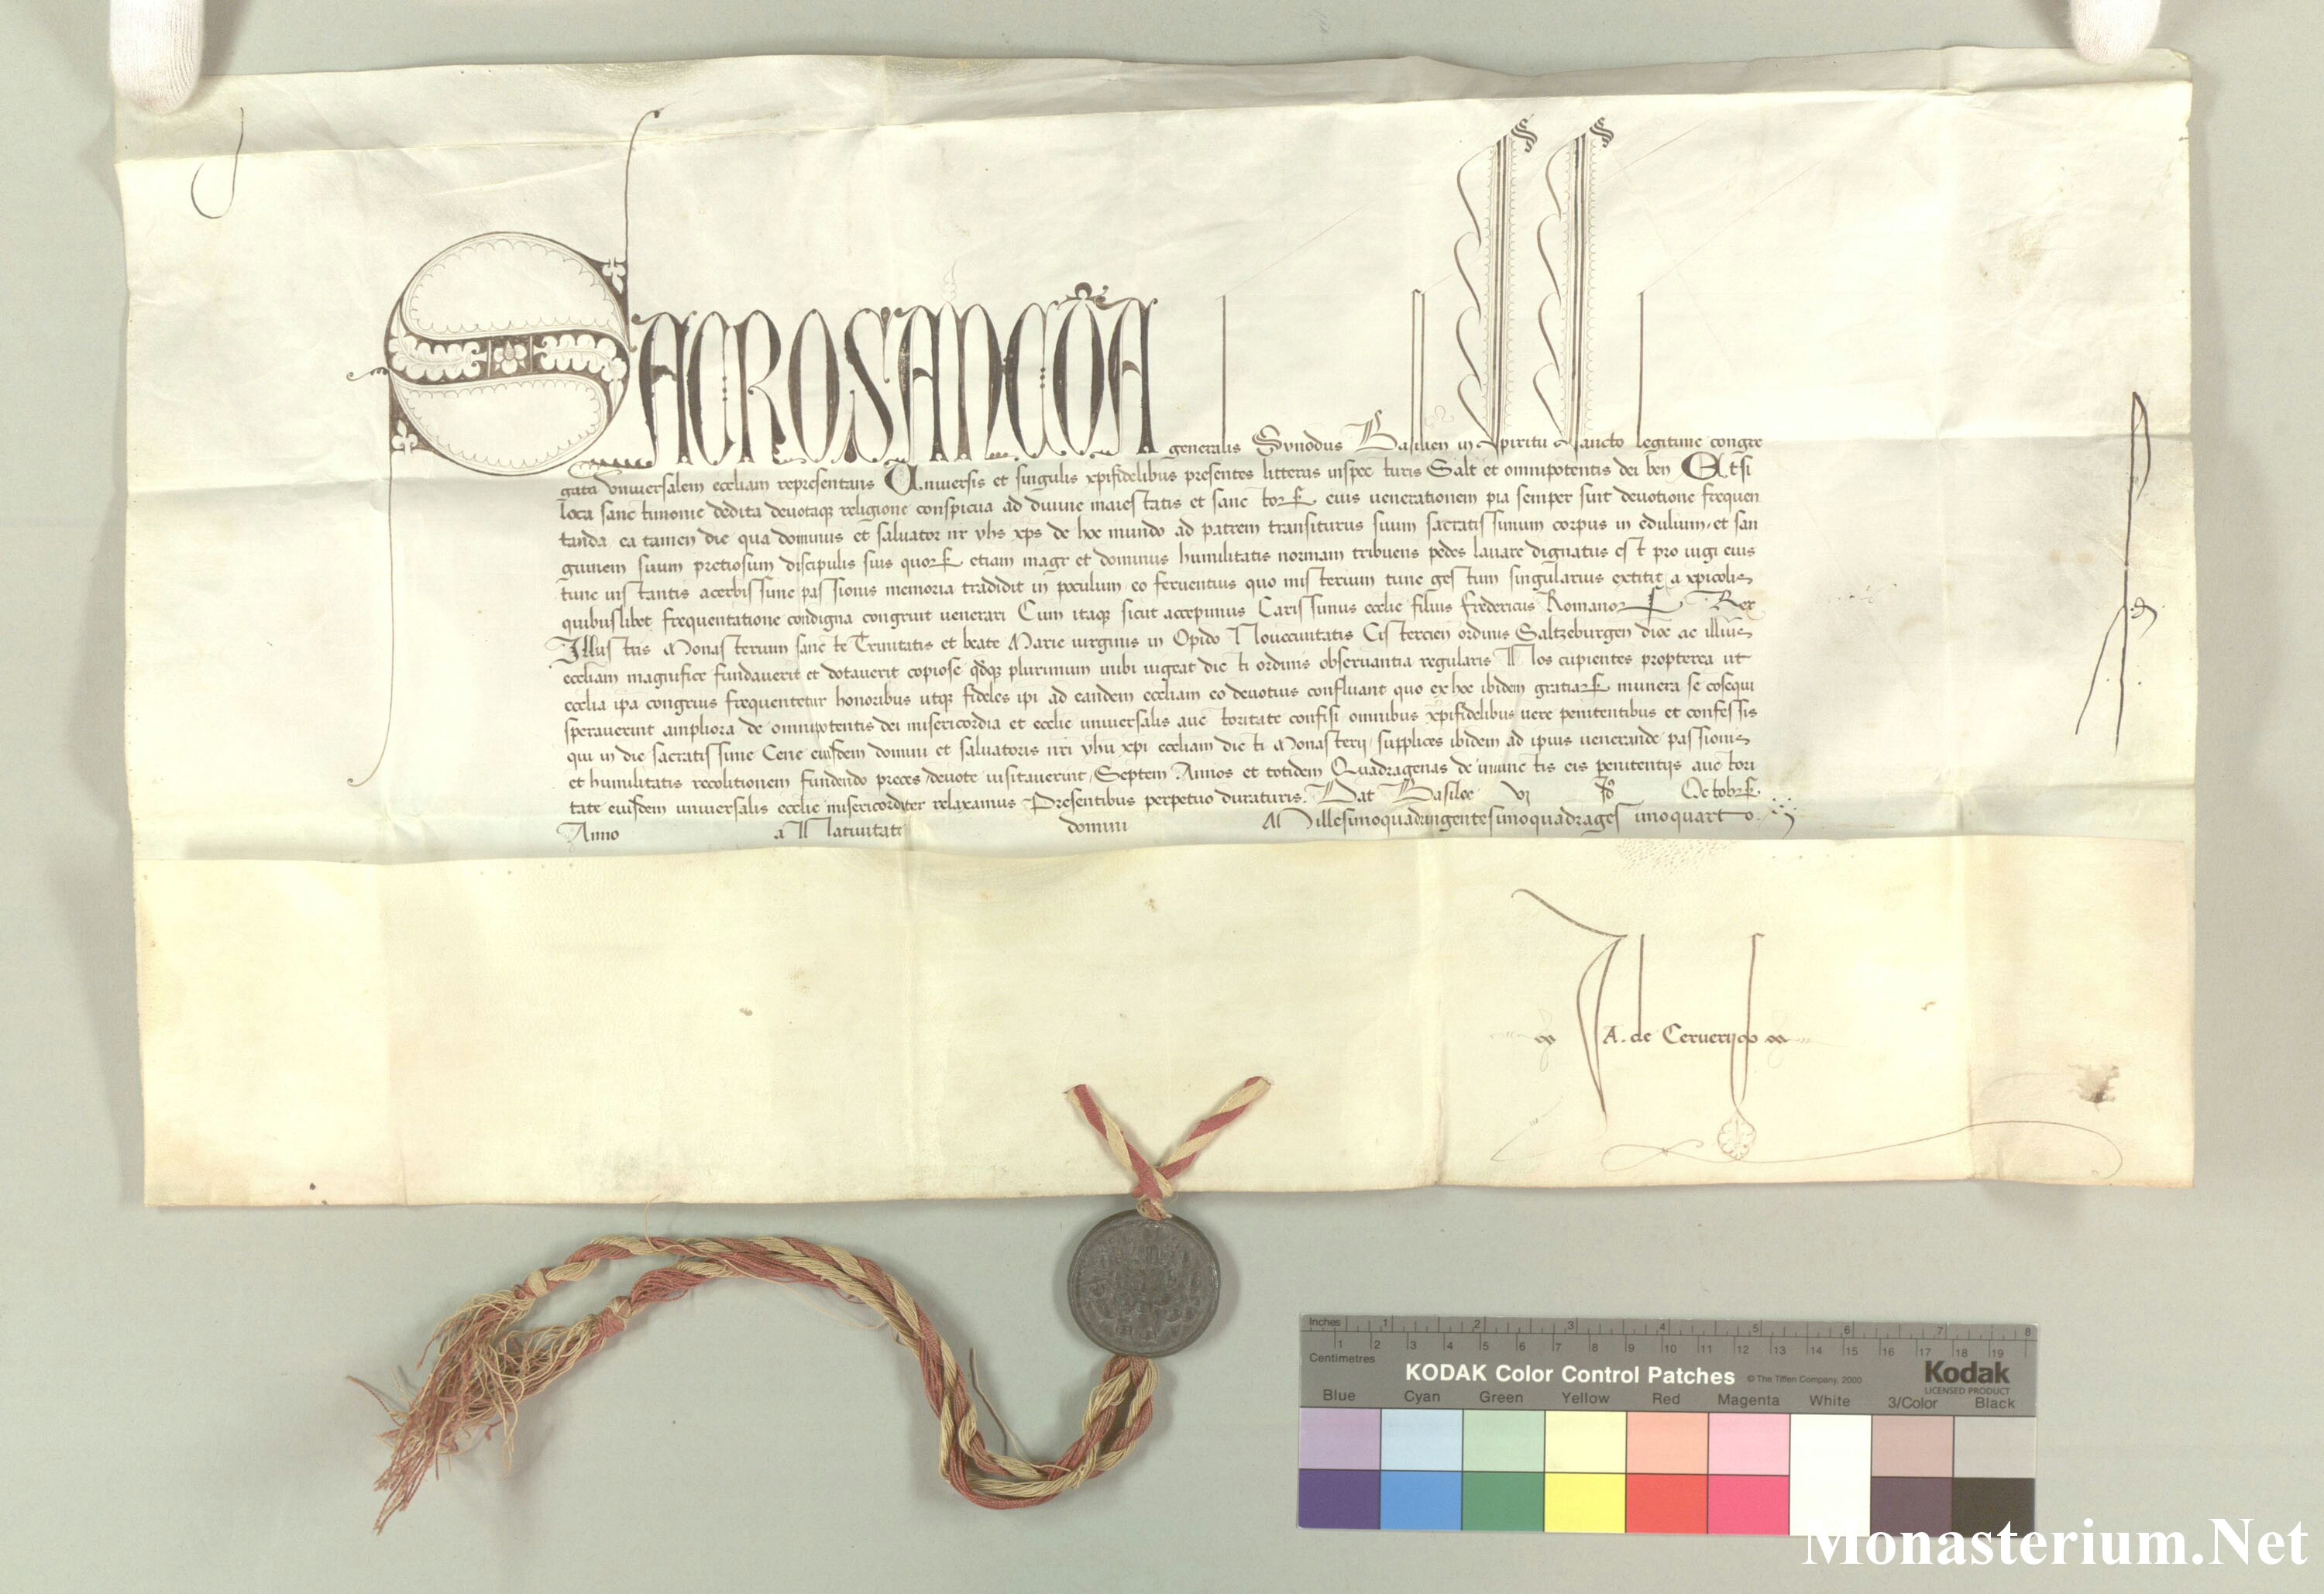 SACROSANCTA generalis Synodus Basilien in Spiritu Sancto legitime congre
gata vniuersalem eccliam representans Vniuersis et singulis xpifidelibus presentes litteras inspecturis Salt et omnipotentis dei ben Etsi
loca sanctimonie dedita deuotaqz religione conspicua ad diuine maiestatis et sanctorꝝ eius uenerationem pia semper sint deuotione frequen
tanda ea tamen die qua dominus et saluator nr yhs xps de hoc mundo ad patrem transiturus suum sacratissimum corpus in edulium et san
guinem suum pretiosum discipulis suis quorꝝ etiam magr et dominus humilitatis normam tribuens pedes lauare dignatus est pro iugi eius
tunc instantis acerbissime passionis memoria tradidit in poculum eo feruentius quo misterium tunc gestum singularius extitit a xpicolis
quibuslibet frequentatione condigna congruit uenerari Cum itaqz sicut accepimus Carissimus ecclie filius fredericus Romanorꝝ Rex
Illustris Monasterium sancte Trinitatis et beate Marie uirginis in Opido Nouecuitatis Cistercien ordinis Saltzeburgen dioc ac illius
eccliam magnifice fundauerit et dotauerit copiose qdqz plurimum inibi uigeat dicti ordinis obseruantia regularis Nos cupientes propterea ut
ecclia ipa congruis frequentetur honoribus utqz fideles ipi ad eandem eccliam eo deuotius confluant quo ex hoc ibidem gratiarꝝ munera se cosequi
sperauerint ampliora de omnipotentis dei misericordia et ecclie uniuersalis auctoritate confisi omnibus xpifidelibus uere penitentibus et confessis
qui in die sacratissime Cene eiusdem domini et saluatoris nri yhu xpi eccliam dicti Monasterij supplices ibidem ad ipius uenerande passionis
et humilitatis recolitionem fundendo preces deuote uisitauerint Septem Annos et totidem Quadragenas de iniunctis eis penitentijs auctori
tate eiusdem uniuersalis ecclie misericorditer relaxamus Presentibus perpetuo duraturis. Dat Basilee vj Octobrꝝ
Anno a Natiuitate domini Millesimoquadringentesimoquadragesimoquarto
A. de Ceruerijs
Inches 1 2 3 4 5 6 7 8
Centimetres 1 2 3 4 5 6 7 8 9 10 11 12 13 14 15 16 17 18 19
KODAK Color Control Patches © The Tiffen Company, 2000 Kodak
LICENSED PRODUCT
Blue Cyan Green Yellow Red Magenta White 3/Color Black
Monasterium.Net